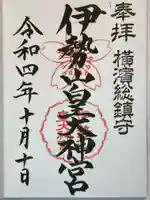 奉拝
横濱総鎮守
伊勢山皇大神宮
令和四年十月十日